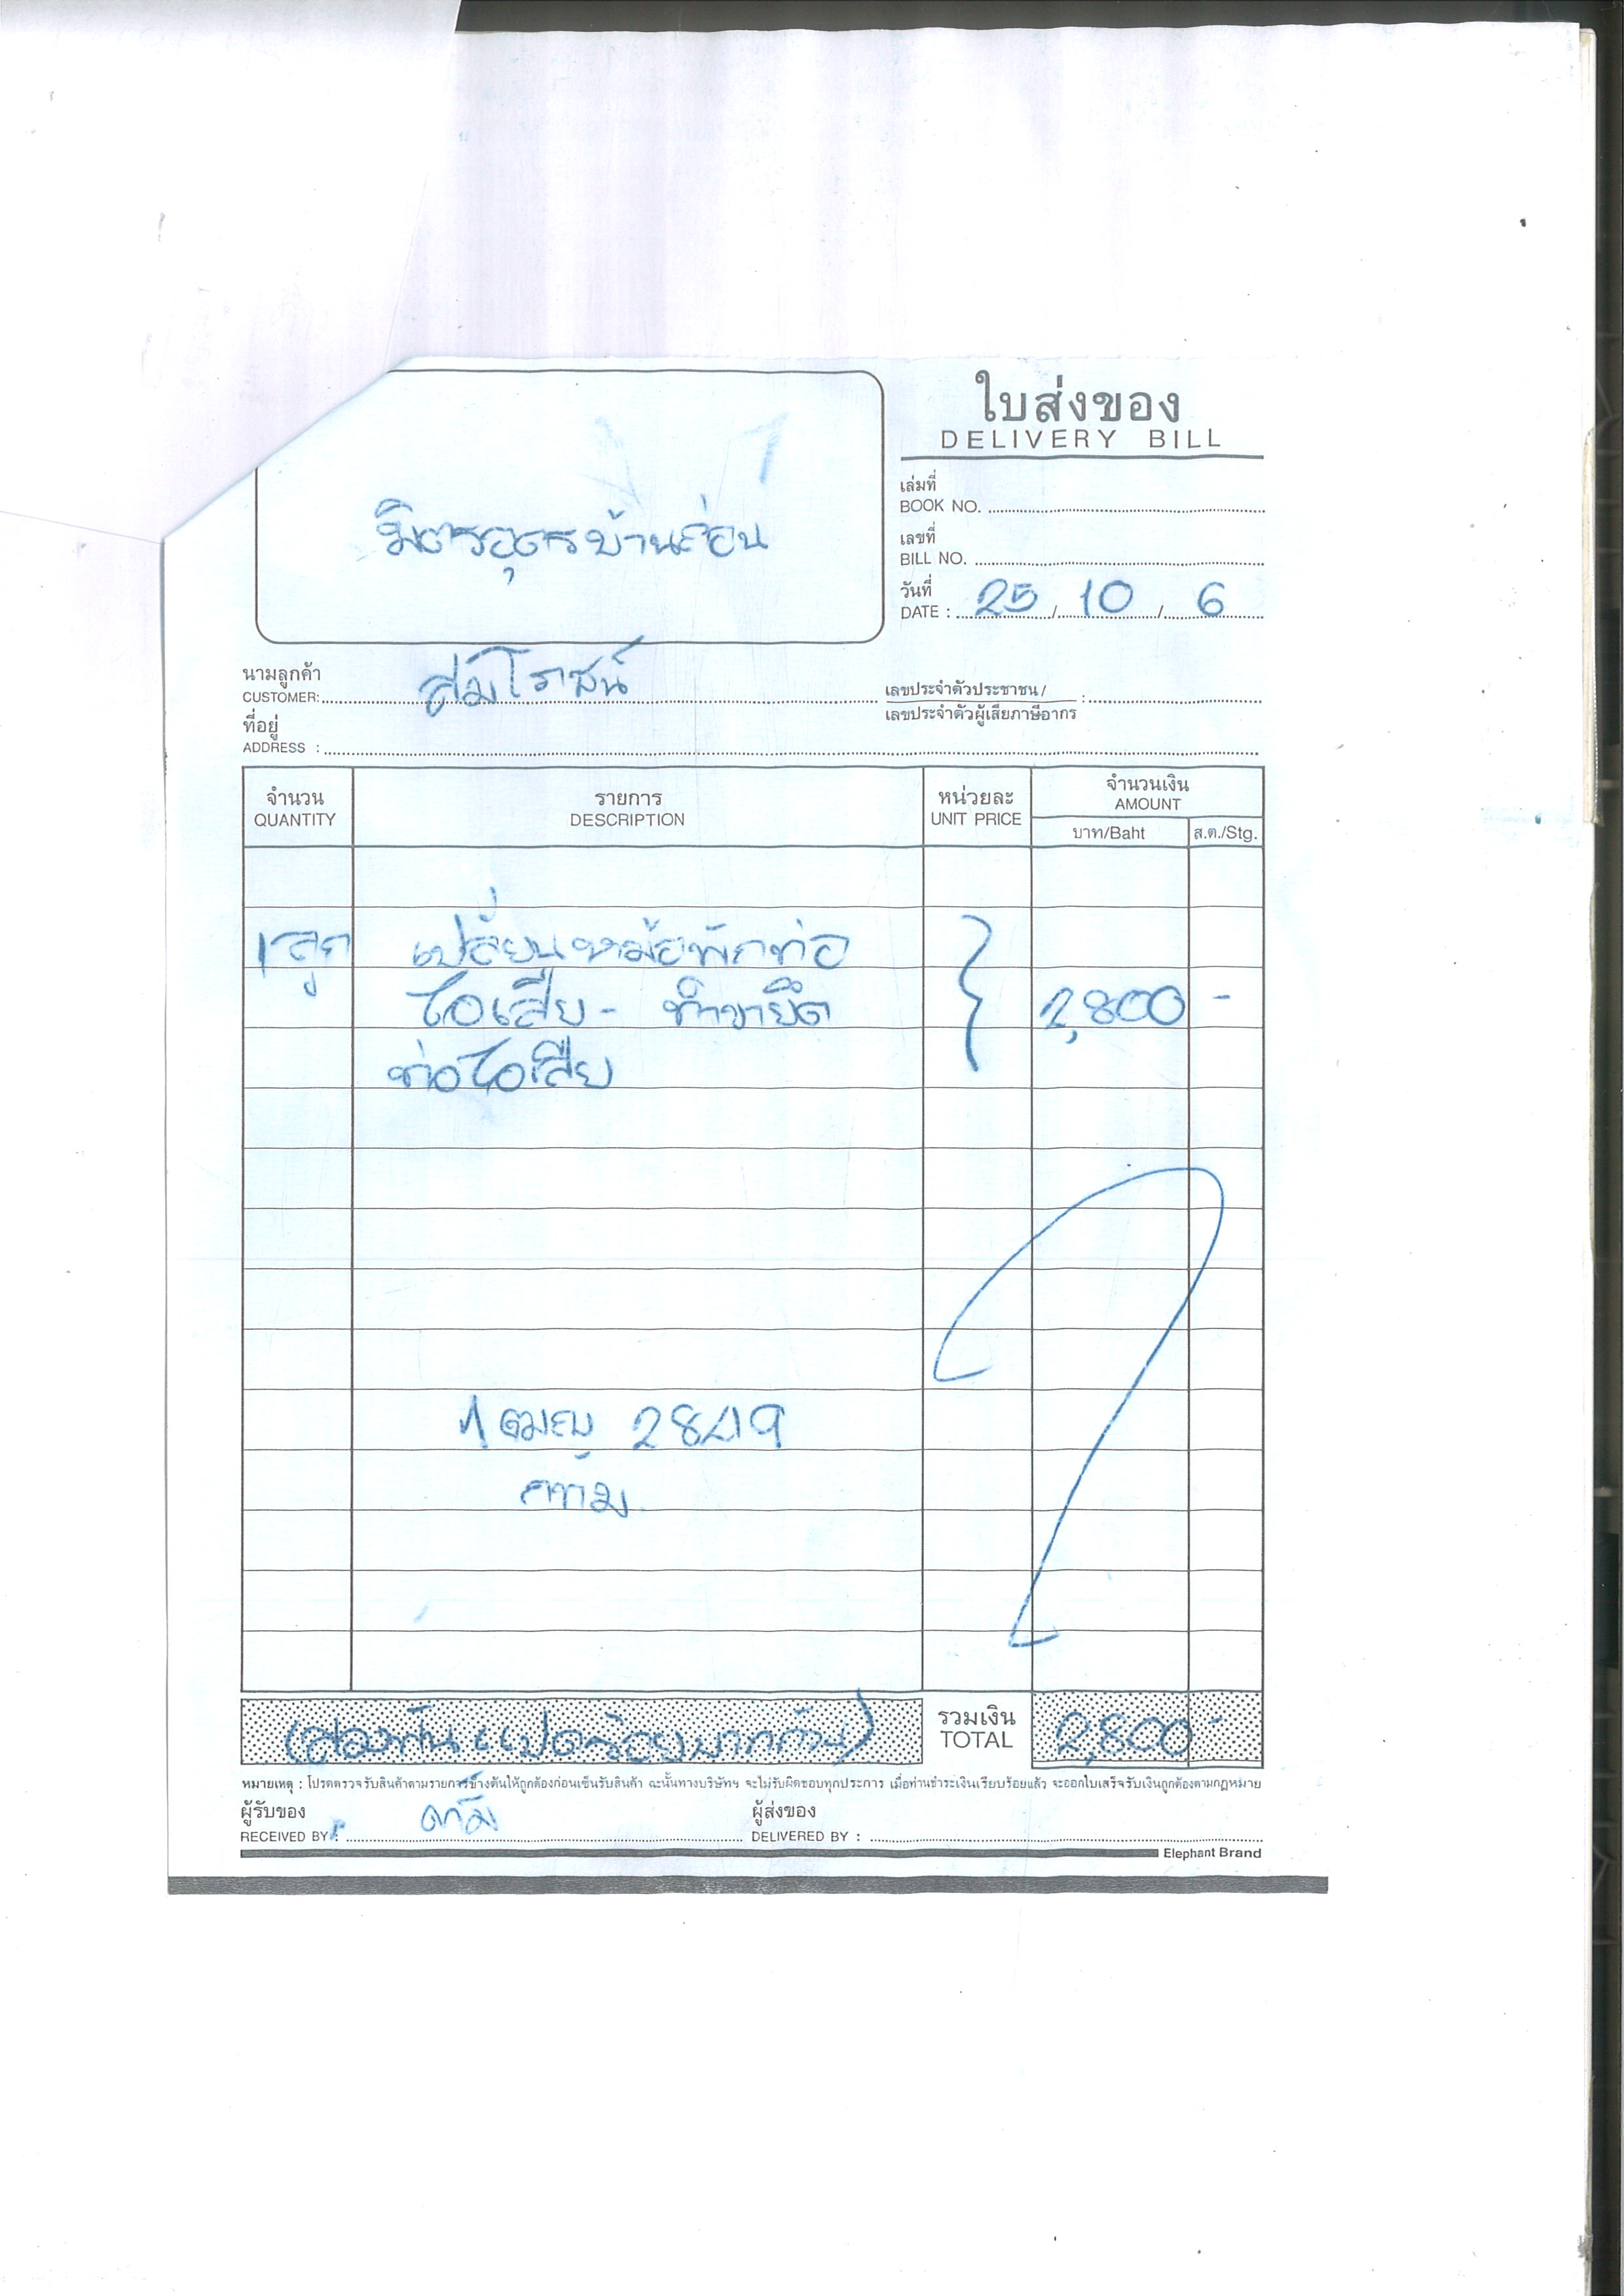 ใบส่งของ
DELIVERY BILL
เล่มที่
BOOK NO.
มิตรอุดรบ้านถ่อน
เลขที่
BILL NO.
วันที่
DATE : 25 / 10 / 6
นามลูกค้า
CUSTOMER: ส้มโรจน์
เลขประจำตัวประชาชน /
เลขประจำตัวผู้เสียภาษีอากร :
ที่อยู่
ADDRESS :
จำนวน รายการ หน่วยละ จำนวนเงิน
QUANTITY DESCRIPTION UNIT PRICE AMOUNT
บาท/Baht ส.ต./Stg.
1 ลูก เปลี่ยนหม้อพักท่อ
ไอเสีย - ทำขายึด 2,800 -
ท่อไอเสีย
2849
(สองพันแปดร้อยบาทถ้วน) รวมเงิน 2,800 -
TOTAL
หมายเหตุ : โปรดตรวจรับสินค้าตามรายการข้างต้นให้ถูกต้องก่อนเซ็นรับสินค้า ฉะนั้นทางบริษัทฯ จะไม่รับผิดชอบทุกประการ เมื่อท่านชำระเงินเรียบร้อยแล้ว จะออกใบเสร็จรับเงินถูกต้องตามกฎหมาย
ผู้รับของ ผู้ส่งของ
RECEIVED BY : DELIVERED BY :
Elephant Brand